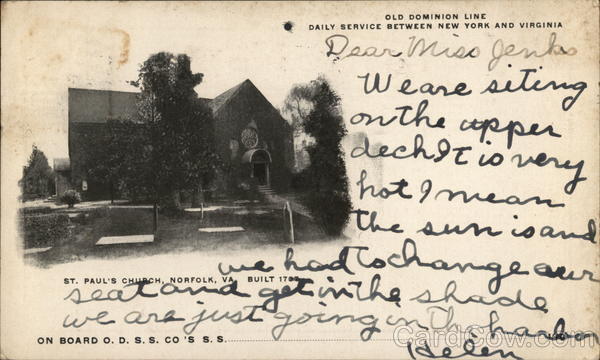 OLD DOMINION LINE
DAILY SERVICE BETWEEN NEW YORK AND VIRGINIA
Dear Miss Jenks
We are siting
on the upper
deck It is very
hot I mean
the sun is and
we had to change our
seat and get in the shade
we are just going in th harbor
Helen
ST. PAUL'S CHURCH, NORFOLK, VA. BUILT
ON BOARD O. D. S. S. CO'S S.S.
CardCow.com